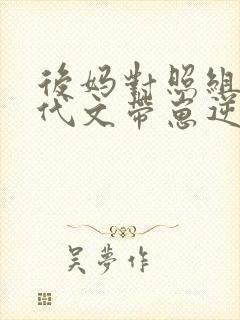 後妈對照組
代文帶崽逆
吴夢作